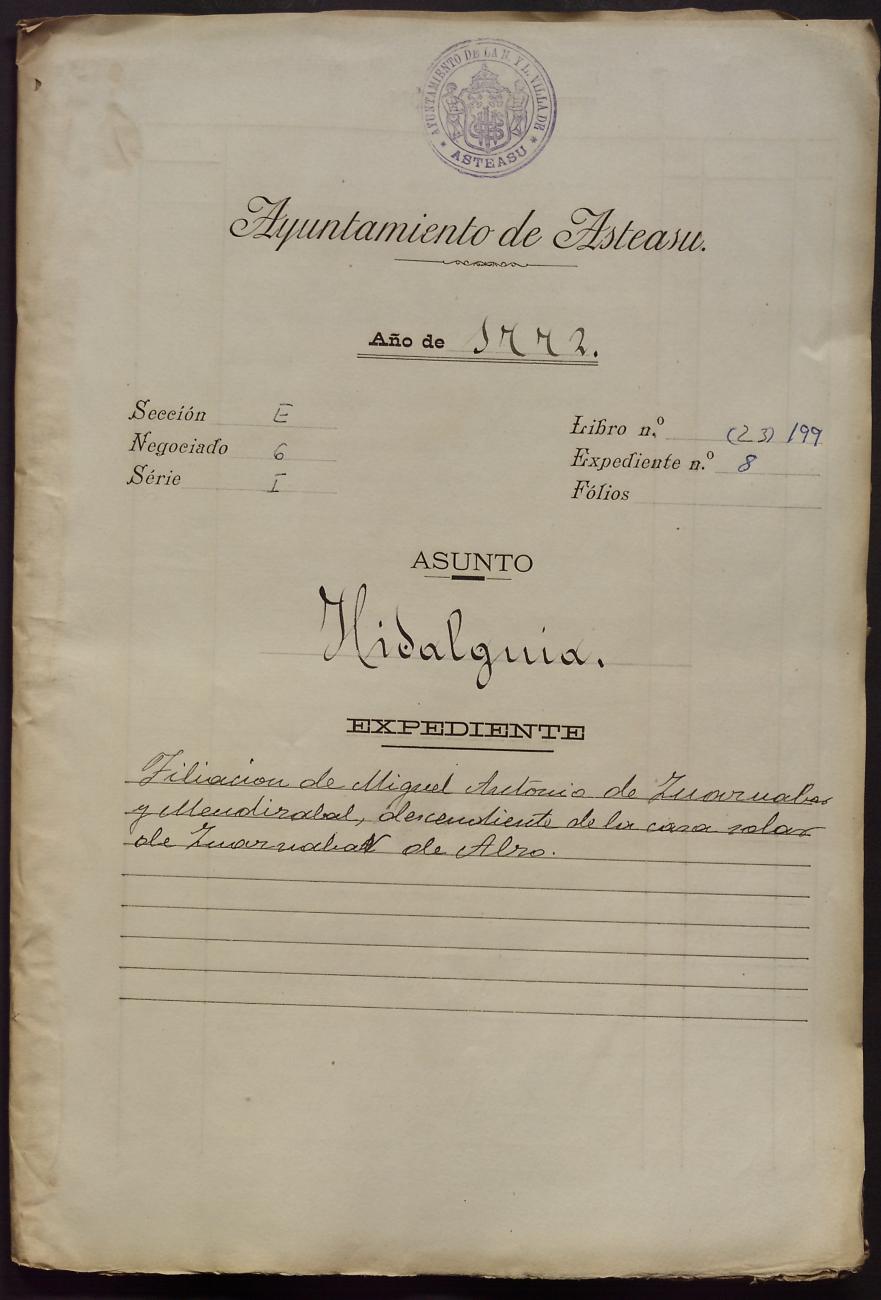 AYUNTAMIENTO DE LA N. Y L. VILLA DE
* ASTEASU *
Ayuntamiento de Asteasu.
Año de 1772.
Sección E
Negociado 6
Série I
Libro n.º (23) 199
Expediente n.º 8
Fólios
ASUNTO
Hidalguia.
EXPEDIENTE
Filiacion de Miguel Antonio de
y Mendizabal, descendiente de la casa solar
de de Alzo.